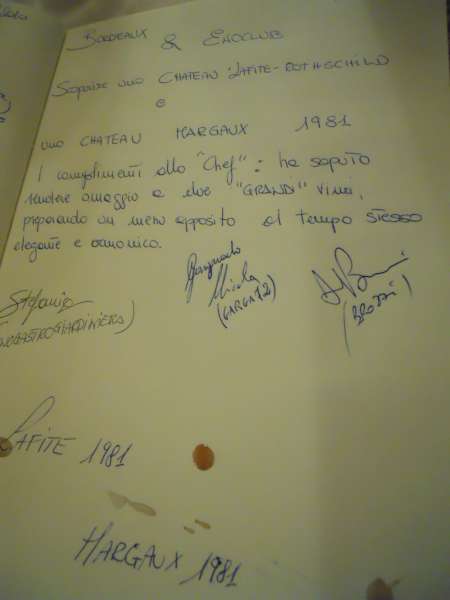 BORDEAUX & ENOCLUB
Scoprire uno CHATEAU LAFITE-ROTHSCHILD
e
uno CHATEAU MARGAUX 1981
I complimenti allo "Chef": ha saputo
rendere omaggio a due "GRANDI" vini,
preparando un menu apposito al tempo stesso
elegante e armonico.
Stefania
Nicola
(BROZZI)
LAFITE 1981
MARGAUX 1981